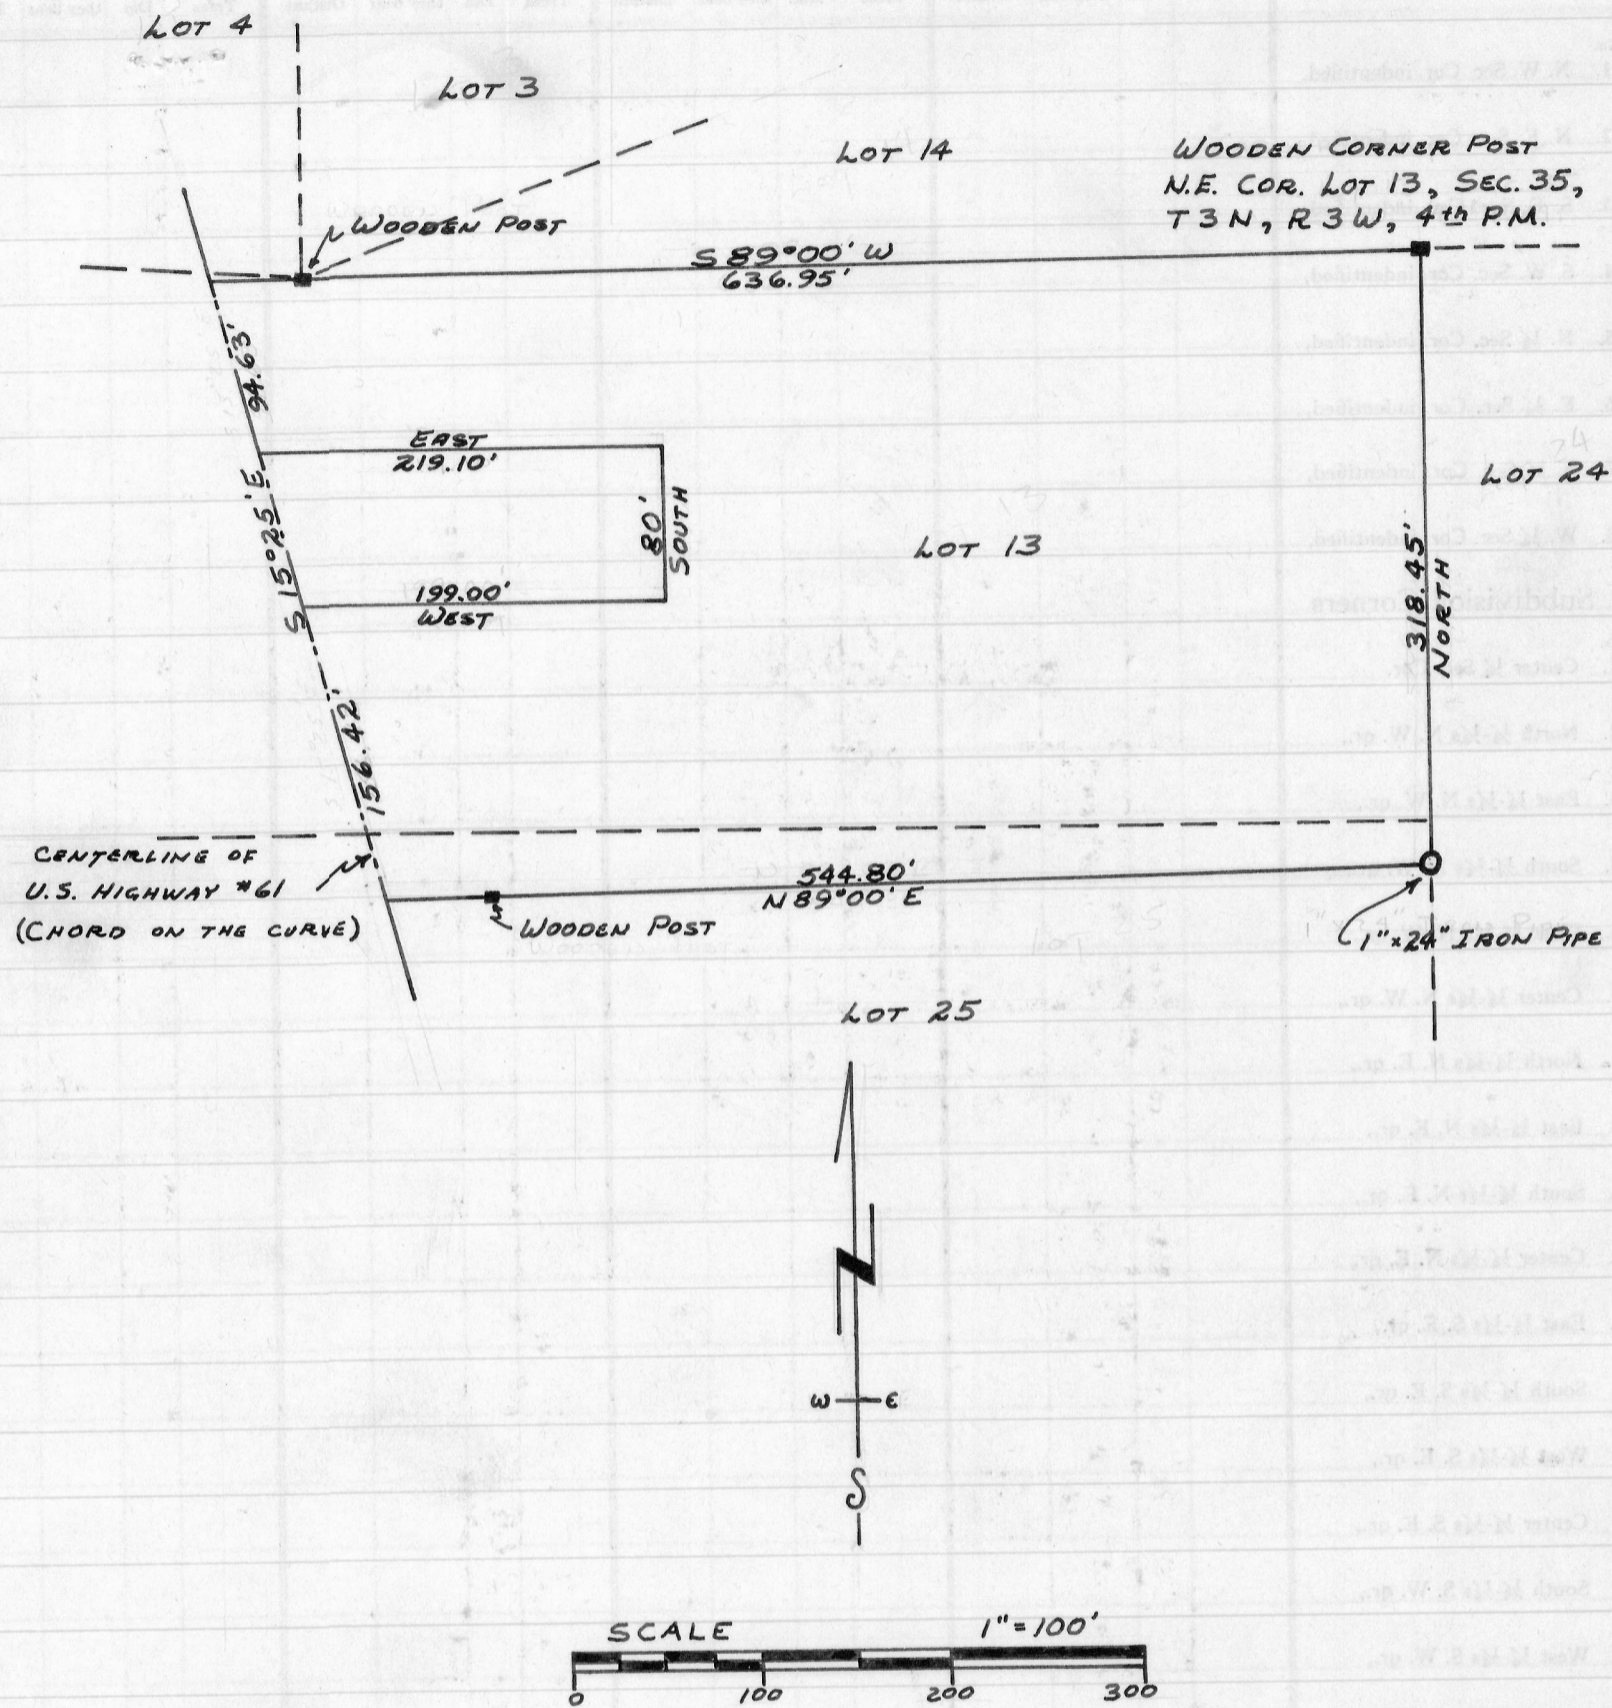 LOT 4
LOT 3
LOT 14
WOODEN CORNER POST
N.E. COR. LOT 13, SEC. 35,
T 3 N, R 3 W, 4th P.M.
WOODEN POST
S 89°00' W
636.95'
94.63'
EAST
219.10'
80'
SOUTH
199.00'
WEST
S 15°25' E
LOT 13
LOT 24
318.45'
NORTH
156.42'
CENTERLINE OF
U.S. HIGHWAY #61
(CHORD ON THE CURVE)
544.80'
N 89°00' E
WOODEN POST
1"x24" IRON PIPE
LOT 25
N
W E
S
SCALE 1"=100'
0 100 200 300